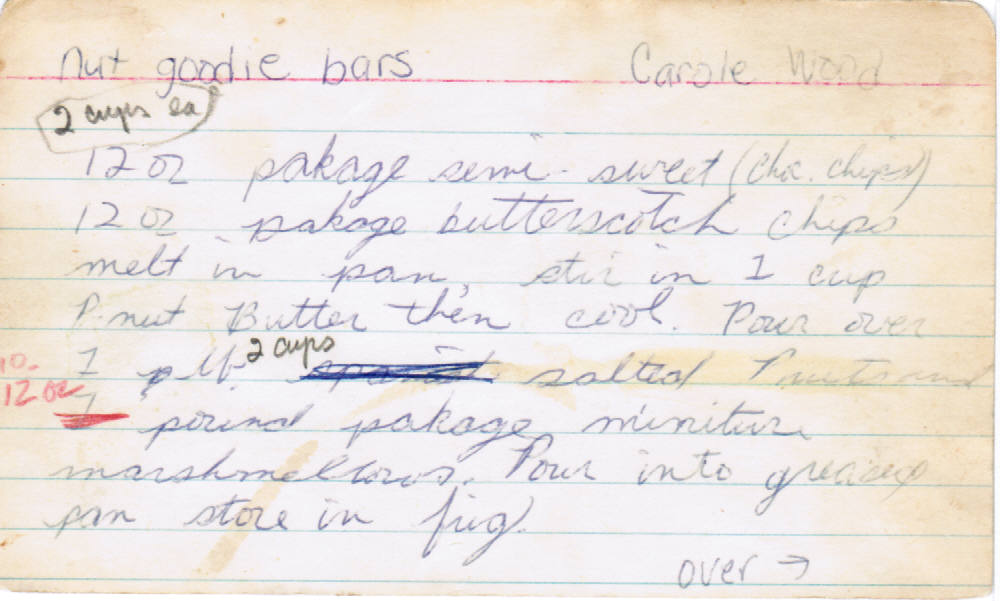 nut goodie bars Carole Wood
2 cups ea
12 oz pakage semi-sweet (choc. chips)
12 oz pakage butterscotch chips
melt in pan, stir in 1 cup
P.nut Butter then cool. Pour over
2 cups
10. 1 lb. salted P nuts and
12 oz
1 pound pakage miniture
marshmellows. Pour into greased
pan store in frig.
over →